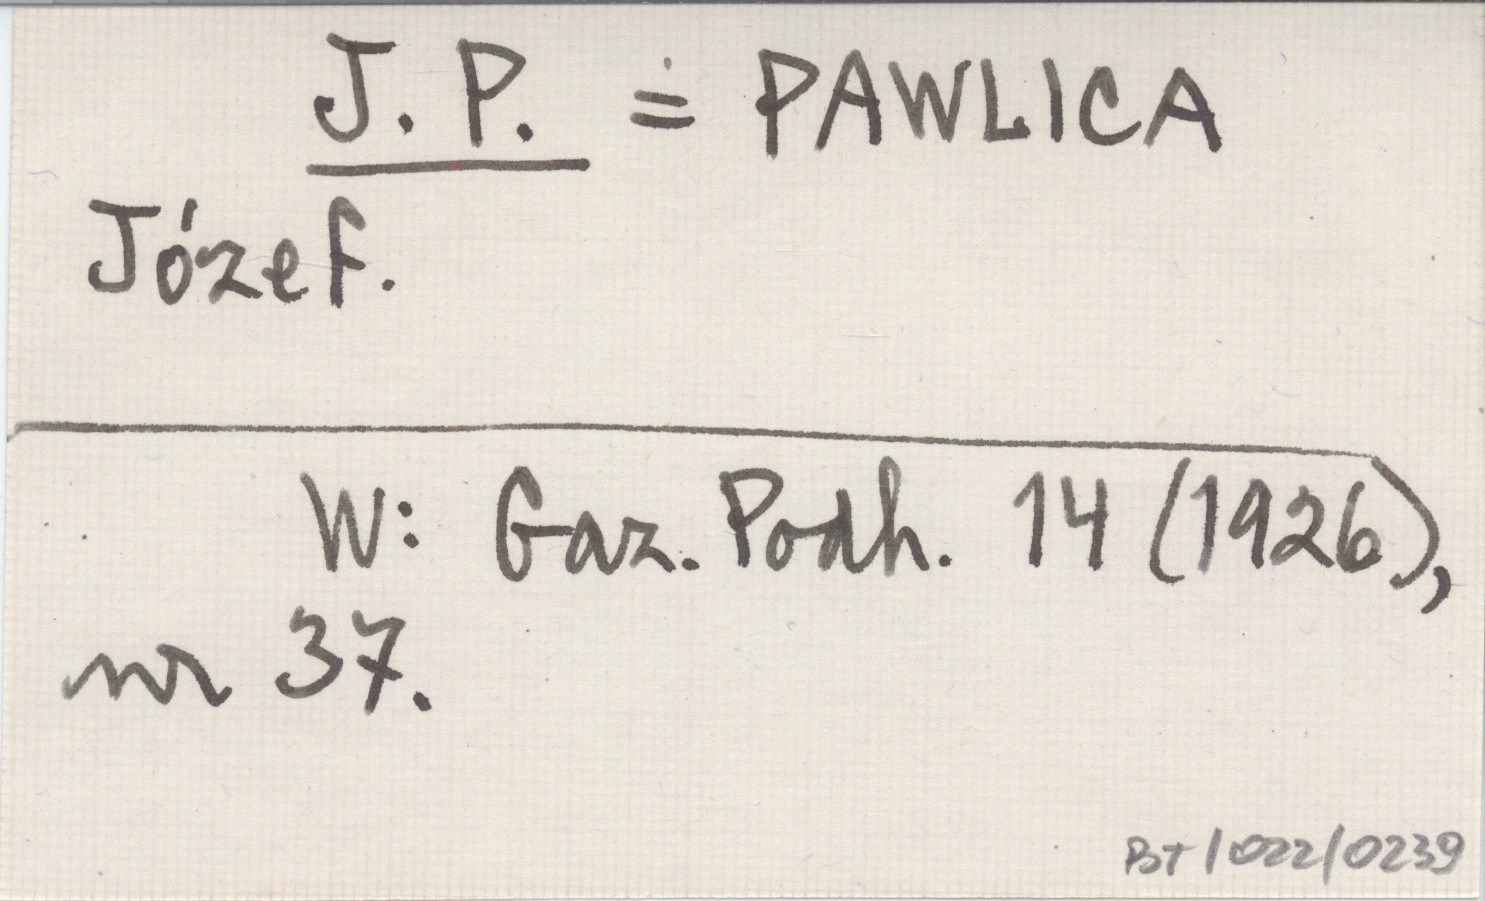 J. P. = PAWLICA
Józef.
W: Gaz. Podh. 14 (1926),
nr 37.
BT/022/0239